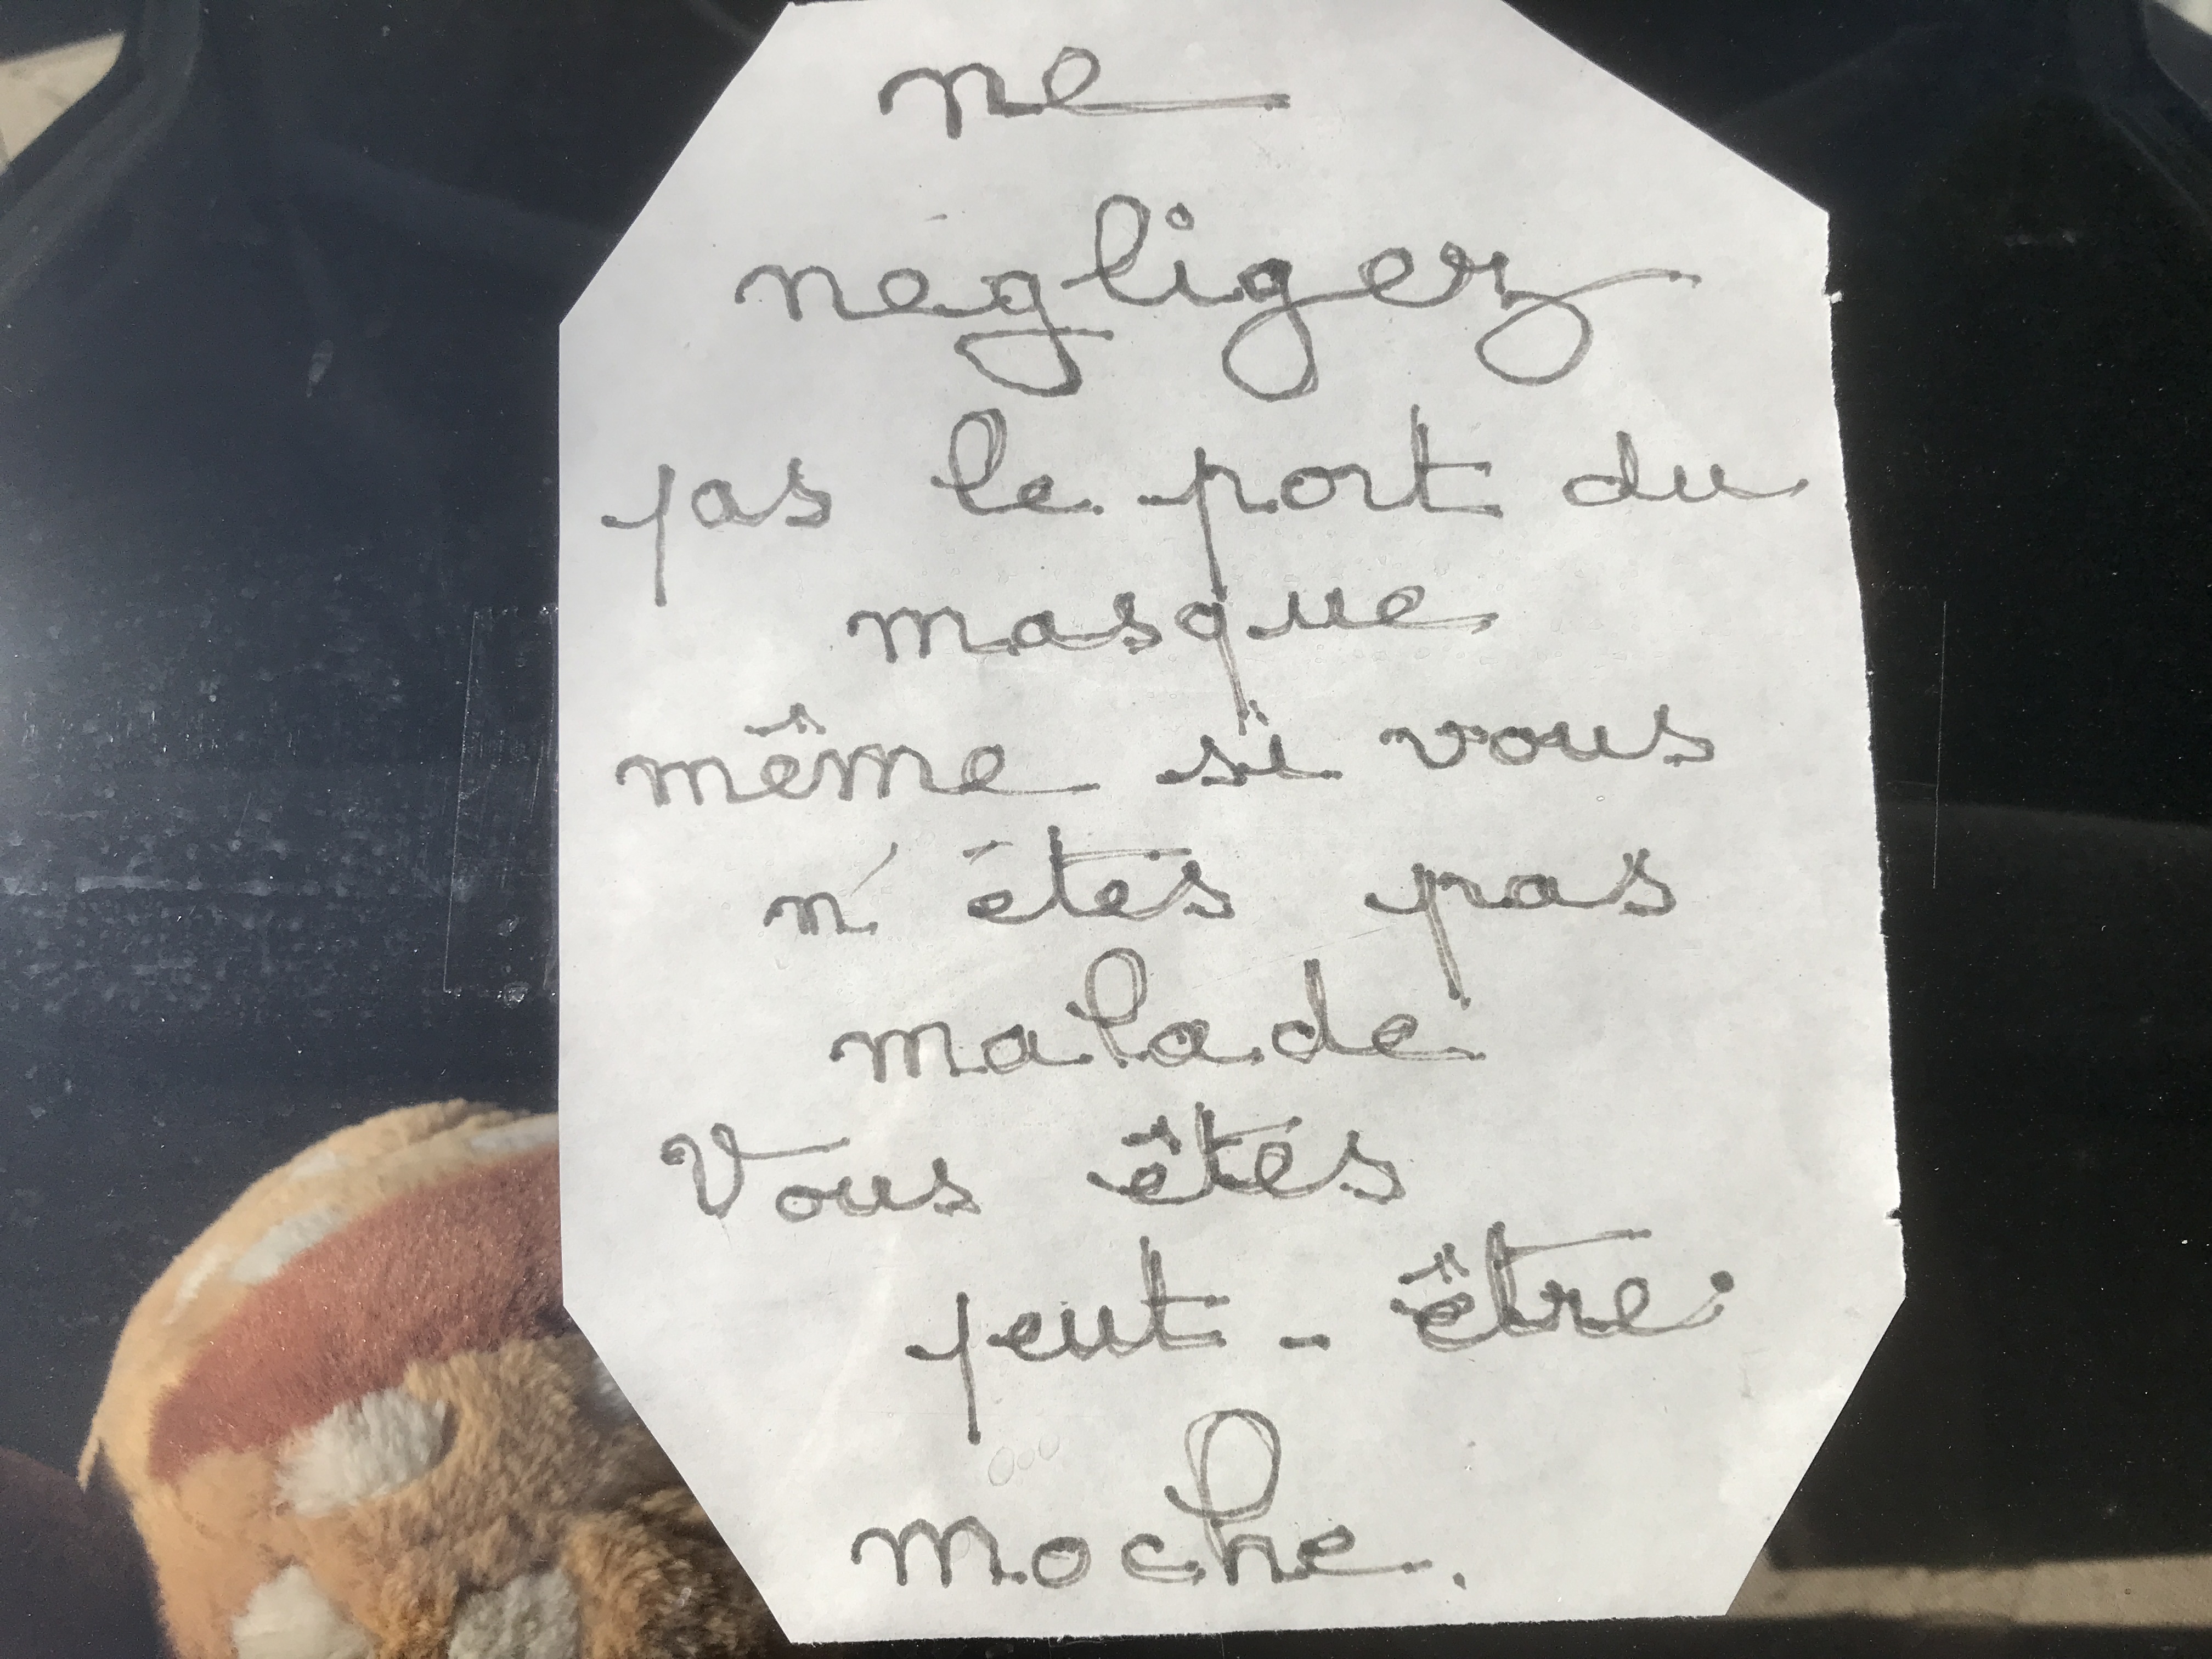 ne
négligez
pas le port du
masque
même si vous
n'êtes pas
malade
Vous êtes
peut-être
moche.